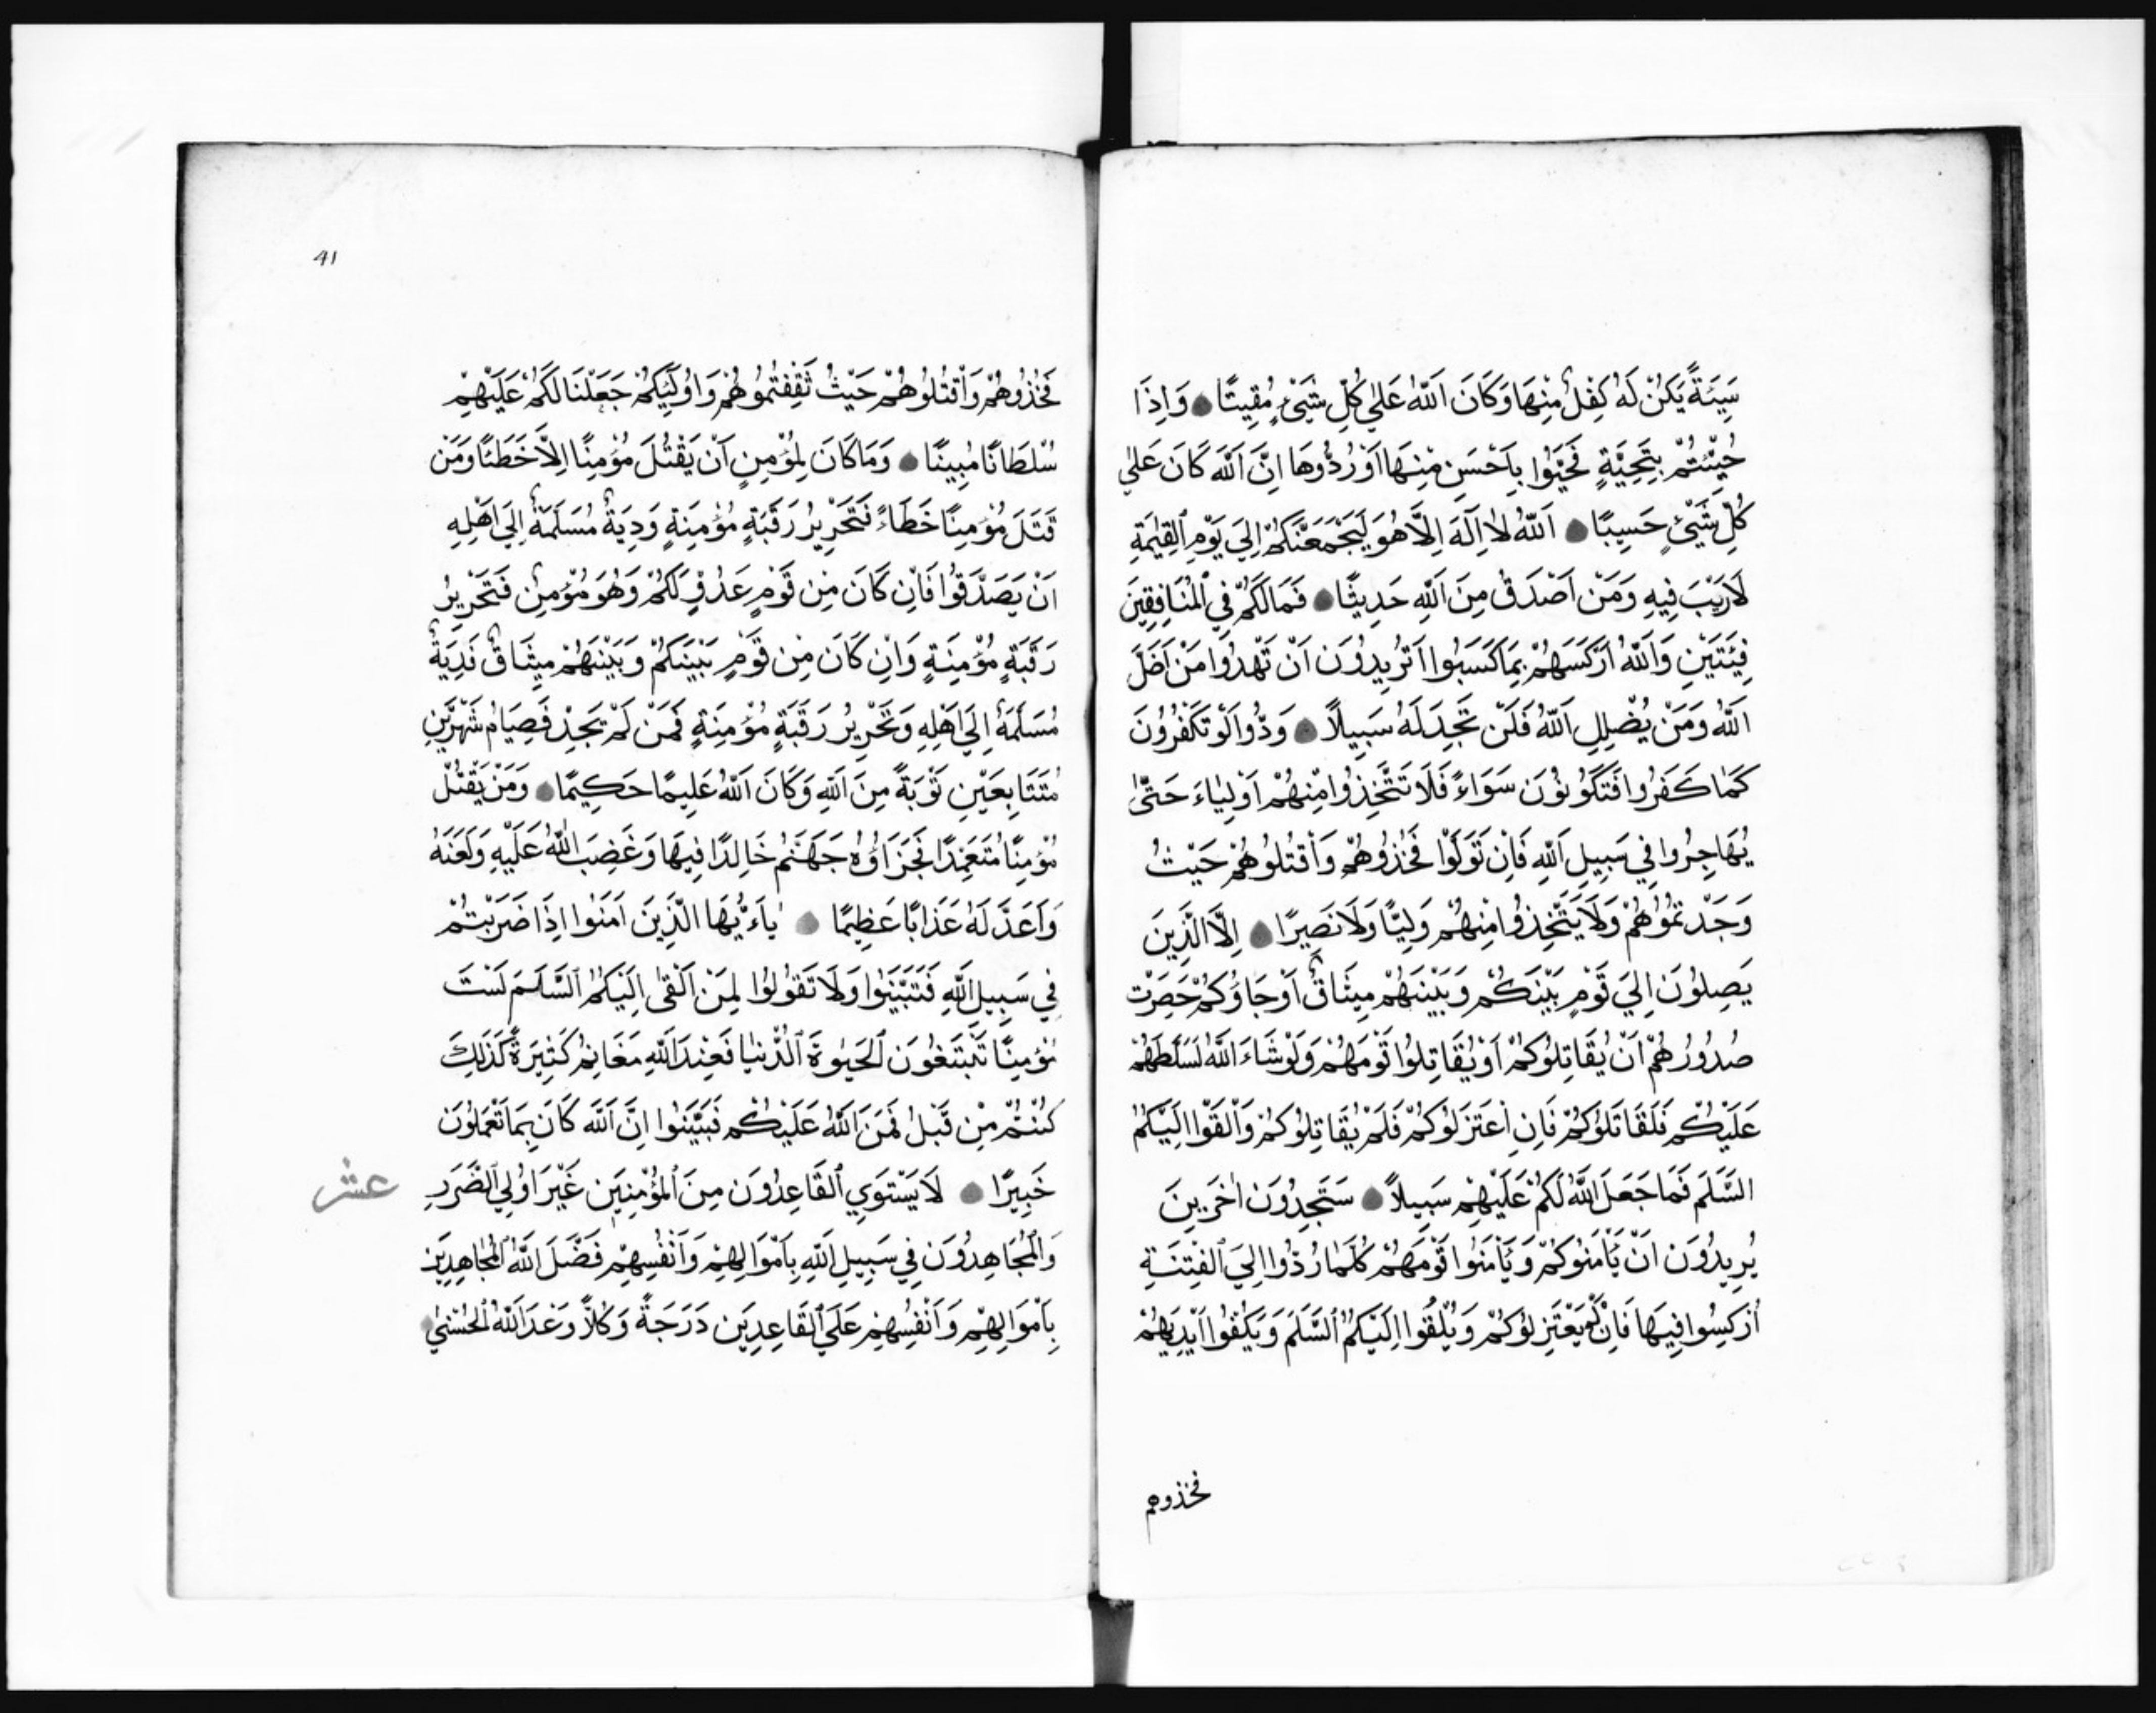 سَيِّئَةً يَكُنْ لَهُ كِفْلٌ مِنْهَا وَكَانَ اَللّٰهُ عَلٰي كُلِّ شَيْءٍ مُقِيتًا وَاِذَا
حُيِّيْتُمْ بِتَحِيَّةٍ فَحَيُّوا بِاَحْسَنِ مِنْهَا اَوْ رُدُّوهَا اِنَّ اَللّٰهَ كَانَ عَلٰي
كُلِّ شَيْءٍ حَسِيبًا اَللّٰهُ لَا اِلَهَ اِلَّا هُوَ لَيَجْمَعَنَّكُمْ اِلَيَ يَوْمِ اَلْقِيٰمَةِ
لَا رَيْبَ فِيهِ وَمَنْ اَصْدَقُ مِنَ اَللّٰهِ حَدِيثًا فَمَا لَكُمْ فِي اَلْمُنَافِقِينَ
فِئَتَيْنِ وَاَللّٰهُ اَرْكَسَهُمْ بِمَا كَسَبُوا اَتُرِيدُونَ اَنْ تَهْدُوا مَنْ اَضَلَّ
اَللّٰهُ وَمَنْ يُضْلِلِ اَللّٰهُ فَلَنْ تَجِدَ لَهُ سَبِيلًا وَدُّوا لَوْ تَكْفُرُونَ
كَمَا كَفَرُوا فَتَكُونُونَ سَوَاءً فَلَا تَتَّخِذُوا مِنْهُمْ اَوْلِيَاءَ حَتَّىٰ
يُهَاجِرُوا فِي سَبِيلِ اَللّٰهِ فَاِنْ تَوَلَّوْا فَخُذُوهُمْ وَاَقْتُلُوهُمْ حَيْثُ
وَجَدْتُمُوُهُمْ وَلَا يَتَّخِذُوا مِنْهُمْ وَلِيًّا وَلَا نَصِيرًا اِلَّا الَّذِينَ
يَصِلُونَ اِلَيَ قَوْمٍ بَيْنَكُمْ وَبَيْنَهُمْ مِيثَاقٌ اَوْ جَاؤُكُمْ حَصِرَتْ
صُدُورُهُمْ اَنْ يُقَاتِلُوكُمْ اَوْ يُقَاتِلُوا قَوْمَهُمْ وَلَوْ شَاءَ اَللّٰهُ لَسَلَّطَهُمْ
عَلَيْكُمْ فَلَقَاتَلُوكُمْ فَاِنِ اَعْتَزَلُوكُمْ فَلَمْ يُقَاتِلُوكُمْ وَاَلْقَوْا اِلَيْكُمُ
السَّلَمَ فَمَا جَعَلَ اَللّٰهُ لَكُمْ عَلَيْهِمْ سَبِيلًا سَتَجِدُونَ اٰخَرِينَ
يُرِيدُونَ اَنْ يَاْمَنُوكُمْ وَيَاْمَنُوا قَوْمَهُمْ كُلَّمَا رُدُّوا اِلَيَ اَلْفِتْنَةِ
اُرْكِسُوا فِيهَا فَاِنْ لَمْ يَعْتَزِلُوكُمْ وَيُلْقُوا اِلَيْكُمُ اَلسَّلَمَ وَيَكُفُّوا اَيْدِيَهُمْ
فخذوهم
41
فَخُذُوهُمْ وَاَقْتُلُوهُمْ حَيْثُ ثَقِفْتُمُوُهُمْ وَاوُلَئِكُمْ جَعَلْنَا لَكُمْ عَلَيْهِمْ
سُلْطَانًا مُبِينًا وَمَا كَانَ لِمُؤْمِنٍ اَنْ يَقْتُلَ مُؤْمِنًا اِلَّا خَطَئًا وَمَنْ
قَتَلَ مُؤْمِنًا خَطَاءً فَتَحْرِيرُ رَقَبَةٍ مُؤْمِنَةٍ وَدِيَةٌ مُسَلَّمَةٌ اِلَيَ اَهْلِهِ
اَنْ يَصَدَّقُوا فَاِنْ كَانَ مِنْ قَوْمٍ عَدُوٍّ لَكُمْ وَهُوَ مُؤْمِنٌ فَتَحْرِيرُ
رَقَبَةٍ مُؤْمِنَةٍ وَاِنْ كَانَ مِنْ قَوْمٍ بَيْنَكُمْ وَبَيْنَهُمْ مِيثَاقٌ فَدِيَةٌ
مُسَلَّمَةٌ اِلَيَ اَهْلِهِ وَتَحْرِيرُ رَقَبَةٍ مُؤْمِنَةٍ فَمَنْ لَمْ يَجِدْ فَصِيَامُ شَهْرَيْنِ
مُتَتَابِعَيْنِ تَوْبَةً مِنَ اَللّٰهِ وَكَانَ اَللّٰهُ عَلِيمًا حَكِيمًا وَمَنْ يَقْتُلْ
مُؤْمِنًا مُتَعَمِّدًا فَجَزَاؤُهُ جَهَنَّمُ خَالِدًا فِيهَا وَغَضِبَ اَللّٰهُ عَلَيْهِ وَلَعَنَهُ
وَاَعَدَّ لَهُ عَذَابًا عَظِيمًا يٰاَءَيُّهَا الَّذِينَ اَمَنُوا اِذَا ضَرَبْتُمْ
فِي سَبِيلِ اَللّٰهِ فَتَبَيَّنُوا وَلَا تَقُولُوا لِمَنْ اَلْقٰى اِلَيْكُمُ اَلسَّلَمَ لَسْتَ
مُؤْمِنًا تَبْتَغُونَ اَلْحَيٰوةَ اَلدُّنْيٰا فَعِنْدَ اَللّٰهِ مَغَانِمُ كَثِيرَةٌ كَذَلِكَ
كُنْتُمْ مِنْ قَبْلُ فَمَنَّ اَللّٰهُ عَلَيْكُمْ فَتَبَيَّنُوا اِنَّ اَللّٰهَ كَانَ بِمَا تَعْمَلُونَ
خَبِيرًا لَا يَسْتَوِي اَلْقَاعِدُونَ مِنَ اَلْمُؤْمِنِينَ غَيْرَ اوُلِي اَلضَّرَرِ
عشر
وَالْمُجَاهِدُونَ فِي سَبِيلِ اَللّٰهِ بِاَمْوَالِهِمْ وَاَنْفُسِهِمْ فَضَّلَ اَللّٰهُ اَلْمُجَاهِدِينَ
بِاَمْوَالِهِمْ وَاَنْفُسِهِمْ عَلَي اَلْقَاعِدِينَ دَرَجَةً وَكُلًّا وَعَدَ اَللّٰهُ اَلْحُسْنٰي